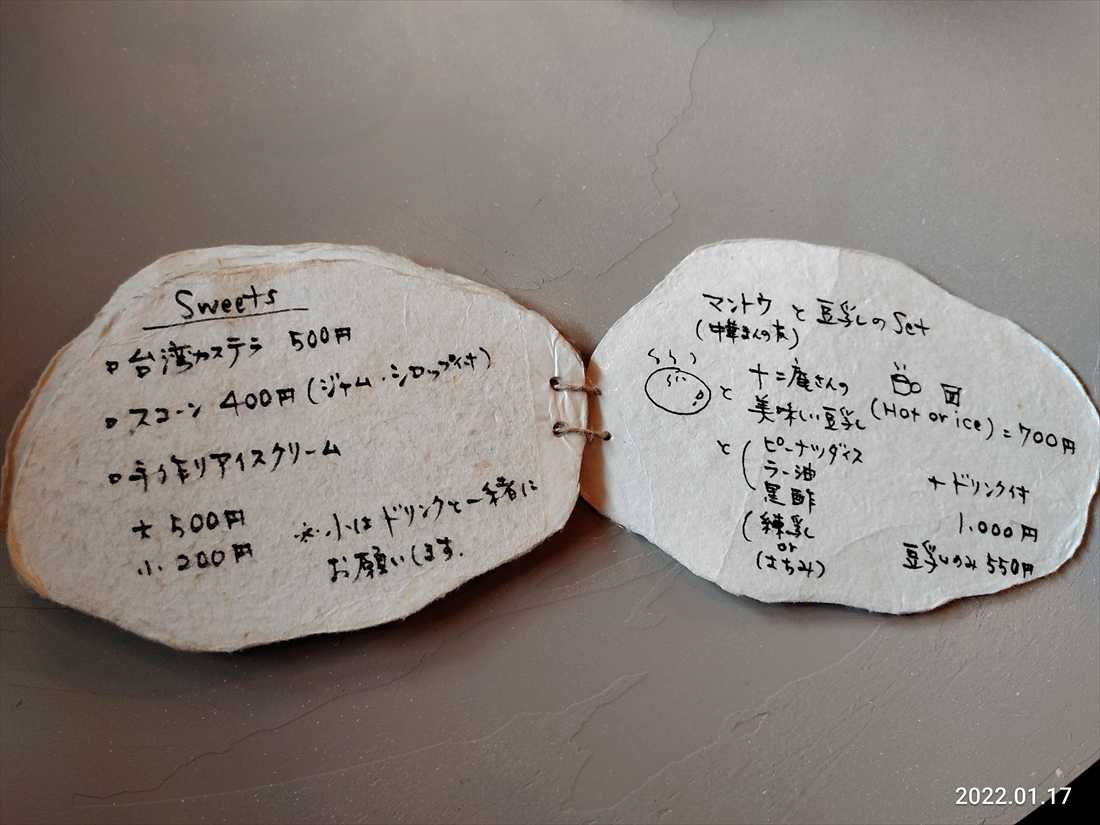 Sweets
▫台湾カステラ 500円
▫スコーン 400円(ジャム・シロップ付)
▫手作りアイスクリーム
大 500円
小 200円
※小はドリンクと一緒に
お願いします.
マントウと豆乳のSet
(中華まんの皮)
と 十二庵さんの
美味しい豆乳 (Hot or ice) = 700円
と ピーナッツダイス
ラー油
黒酢
(練乳
or
(はちみ)
+ドリンク付
1.000円
豆乳のみ 550円
2022.01.17